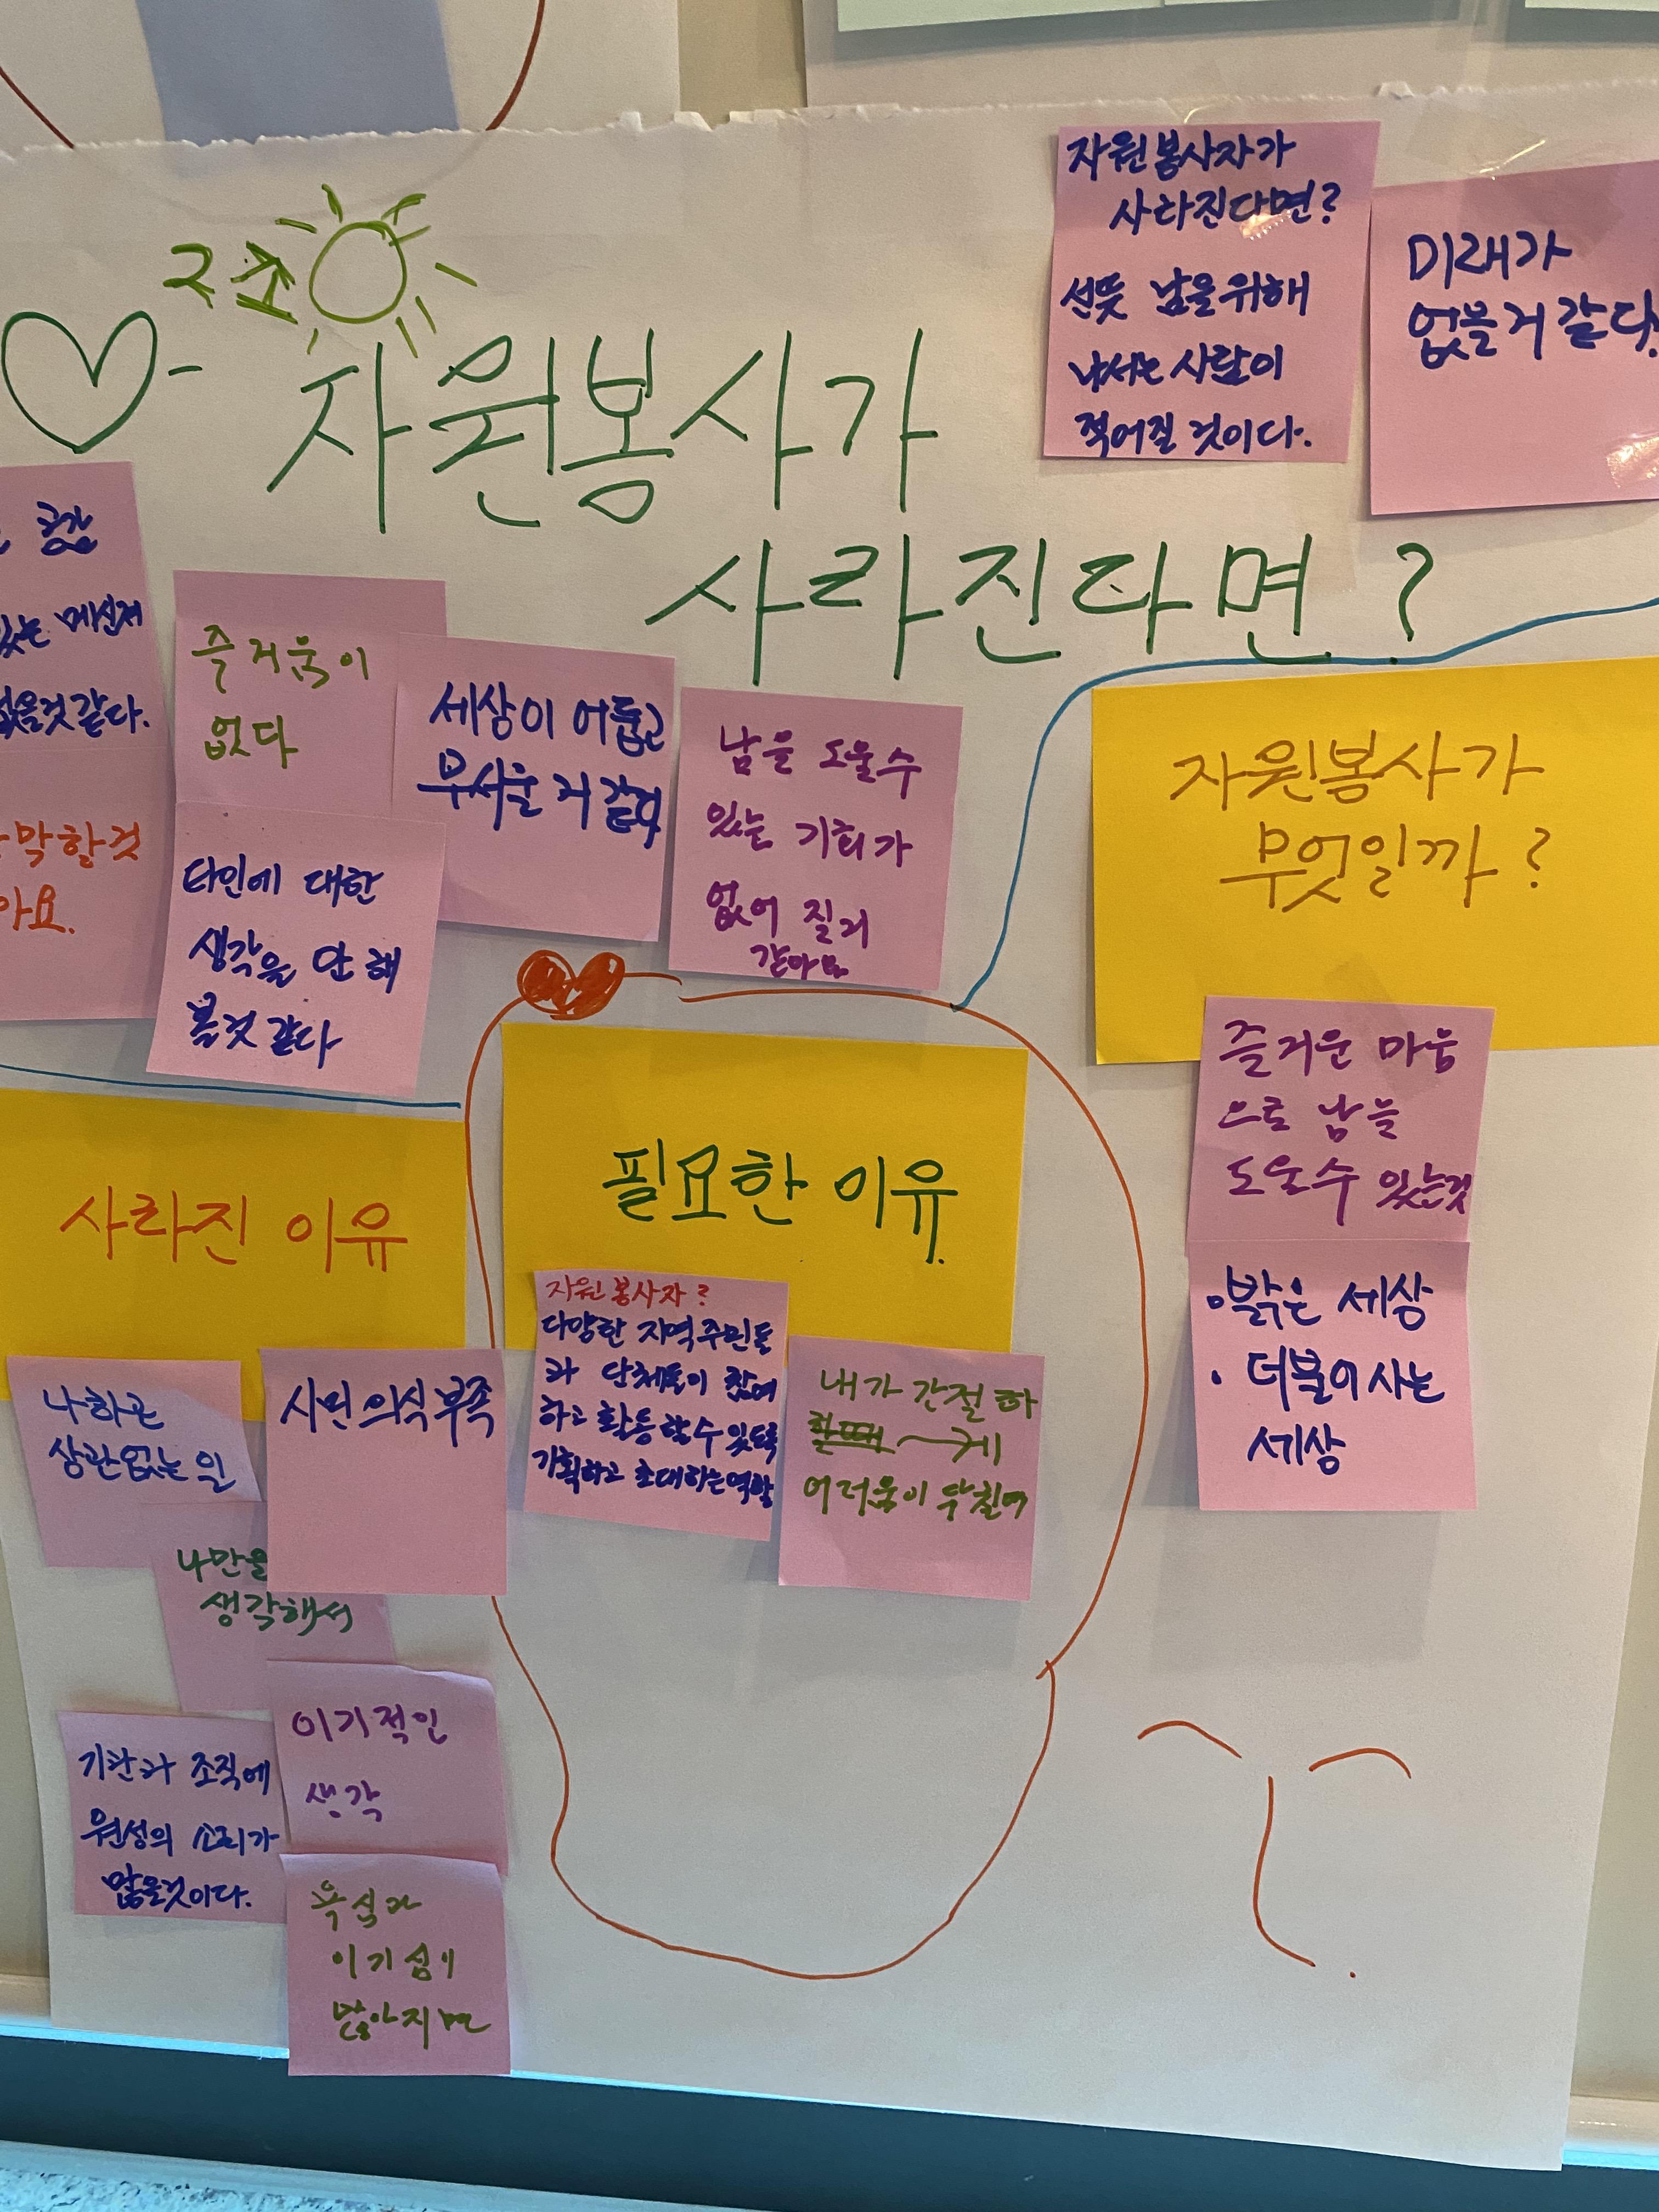 2조
자원봉사가
사라진다면?
자원봉사자가
사라진다면?
선뜻 남을위해
나서는 사람이
적어질 것이다.
미래가
없블거 같다.
있는 메신저
없을것같다.
막할것
아요.
즐거움이
없다
타인에 대한
생각을 안 해
볼것 같다
세상이 어둡고
무서울 거 같다
남을 도울수
있는 기회가
없어 질거
같아요
자원봉사가
무엇일까?
즐거운 마음
으로 남을
도울수 있는것
•밝은 세상
• 더불어 사는
세상
필요한 이유.
자원봉사자?
다양한 지역주민들
과 단체들이 참여
하고 활동할수 있도록
기획하고 초대하는역할
내가 간절하
게
어려움이 닥칠때
사라진 이유
나하곤
상관없는 일
시민의식 부족
나만을
생각해서
이기적인
생각
기관과 조직에
원성의 소리가
많을것이다.
욕심과
이기심이
많아지면